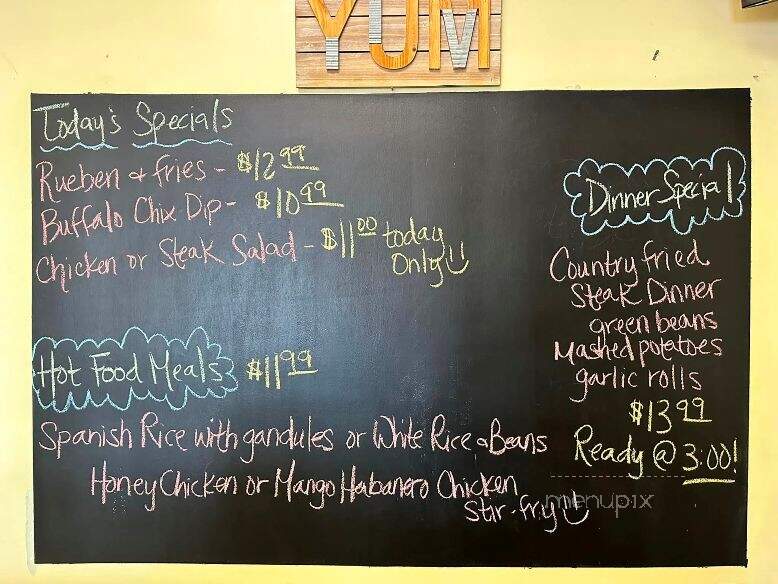 YUM
Today's Specials
Rueben & fries - $12.99
Buffalo Chix Dip - $10.99
Chicken or Steak Salad - $11.00 today
Only
Hot Food Meals $11.99
Spanish Rice with gandules or White Rice & Beans
Honey Chicken or Mango Habanero Chicken
Stir-fry
Dinner Special
Country fried
Steak Dinner
green beans
Mashed potatoes
garlic rolls
$13.99
Ready @ 3:00!
menupix